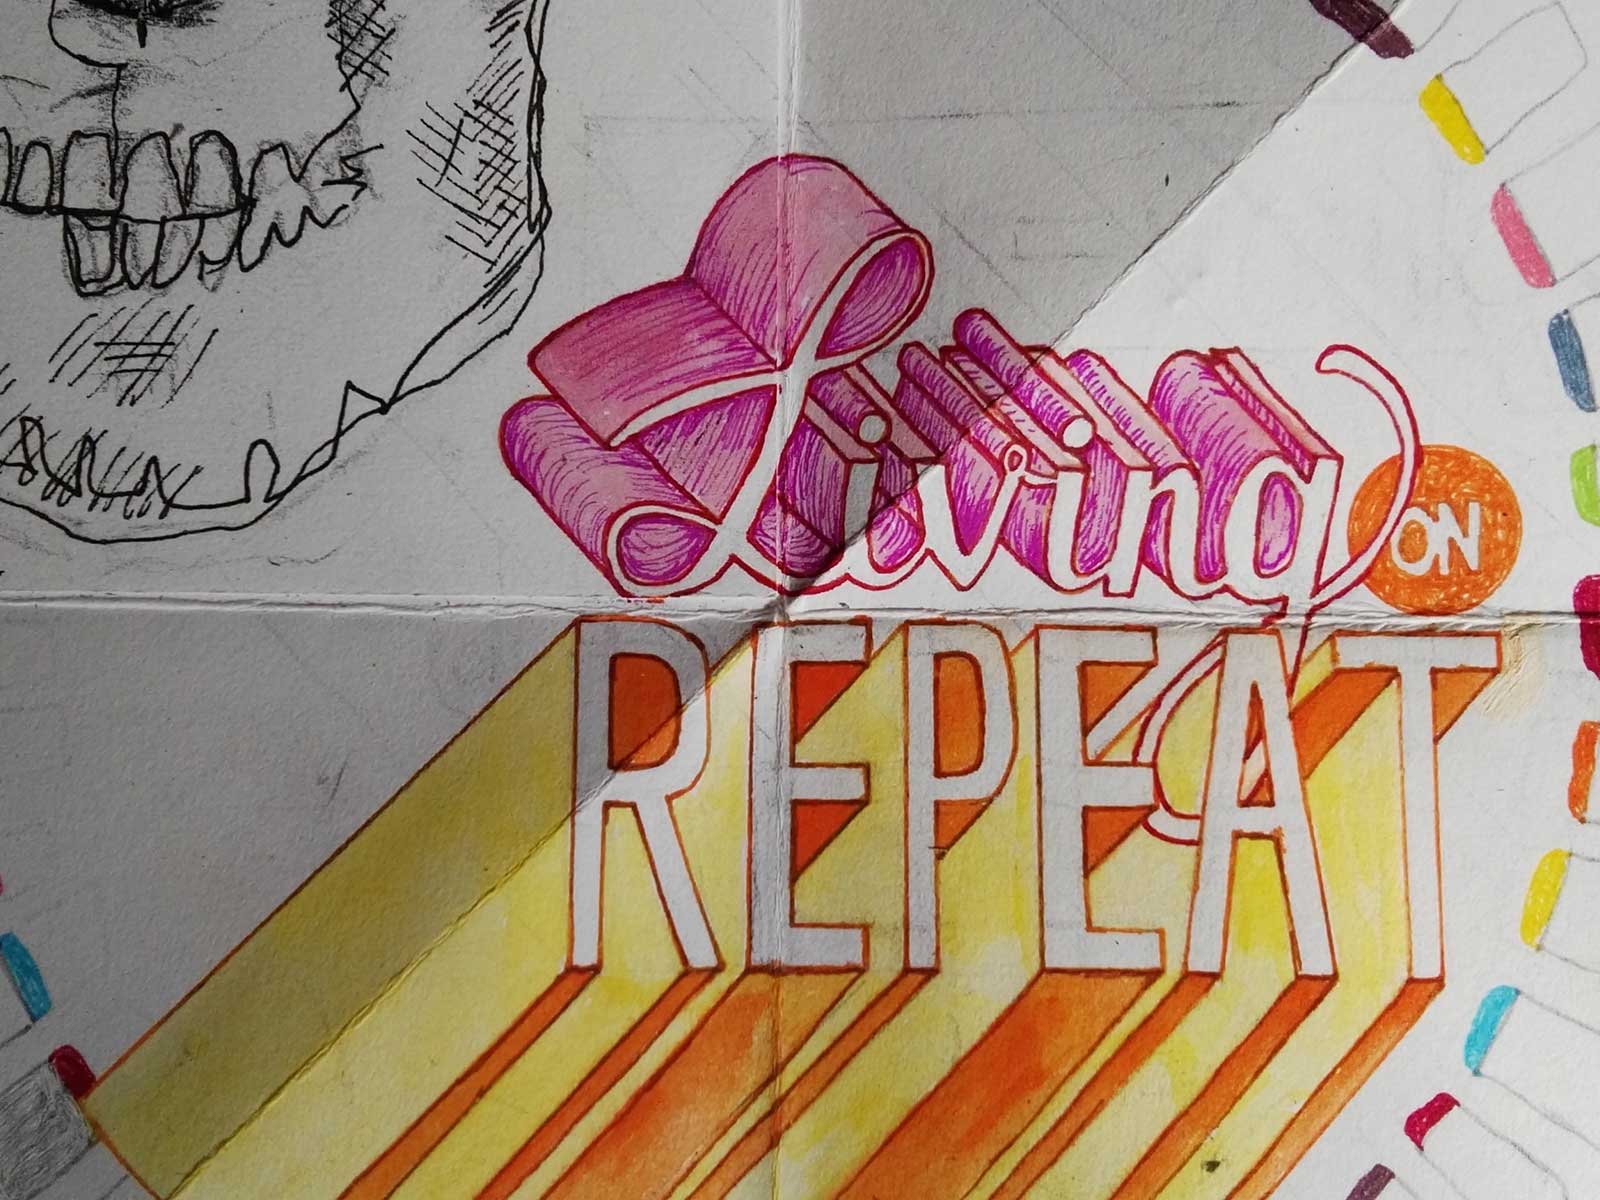 Living
ON
REPEAT